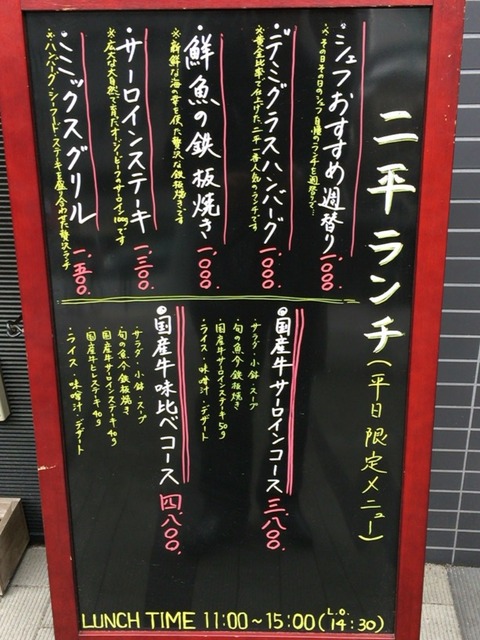 二平ランチ(平日限定メニュー)
シェフおすすめ週替り 一、〇〇〇.
デミグラスハンバーグ 一、〇〇〇.
※黄金比率で仕上げた二平一番人気のランチです
鮮魚の鉄板焼き 一、〇〇〇.
※新鮮な海の幸を使った贅沢な鉄板焼きです
サーロインステーキ 一、三〇〇.
※広大な大自然で育ったオージービーフのサーロイン100gです
ミックスグリル 一、五〇〇.
※ハンバーグ・シーフード・ステーキを盛り合わせた贅沢ランチ
国産牛サーロインコース 三、八〇〇.
サラダ・小鉢・スープ
旬の魚介鉄板焼き
国産牛サーロインステーキ50g
ライス・味噌汁・デザート
国産牛味比べコース 四、八〇〇.
サラダ・小鉢・スープ
旬の魚介鉄板焼き
国産牛サーロインステーキ40g
国産牛ヒレステーキ40g
ライス・味噌汁・デザート
LUNCH TIME 11:00~15:00(L.O. 14:30)